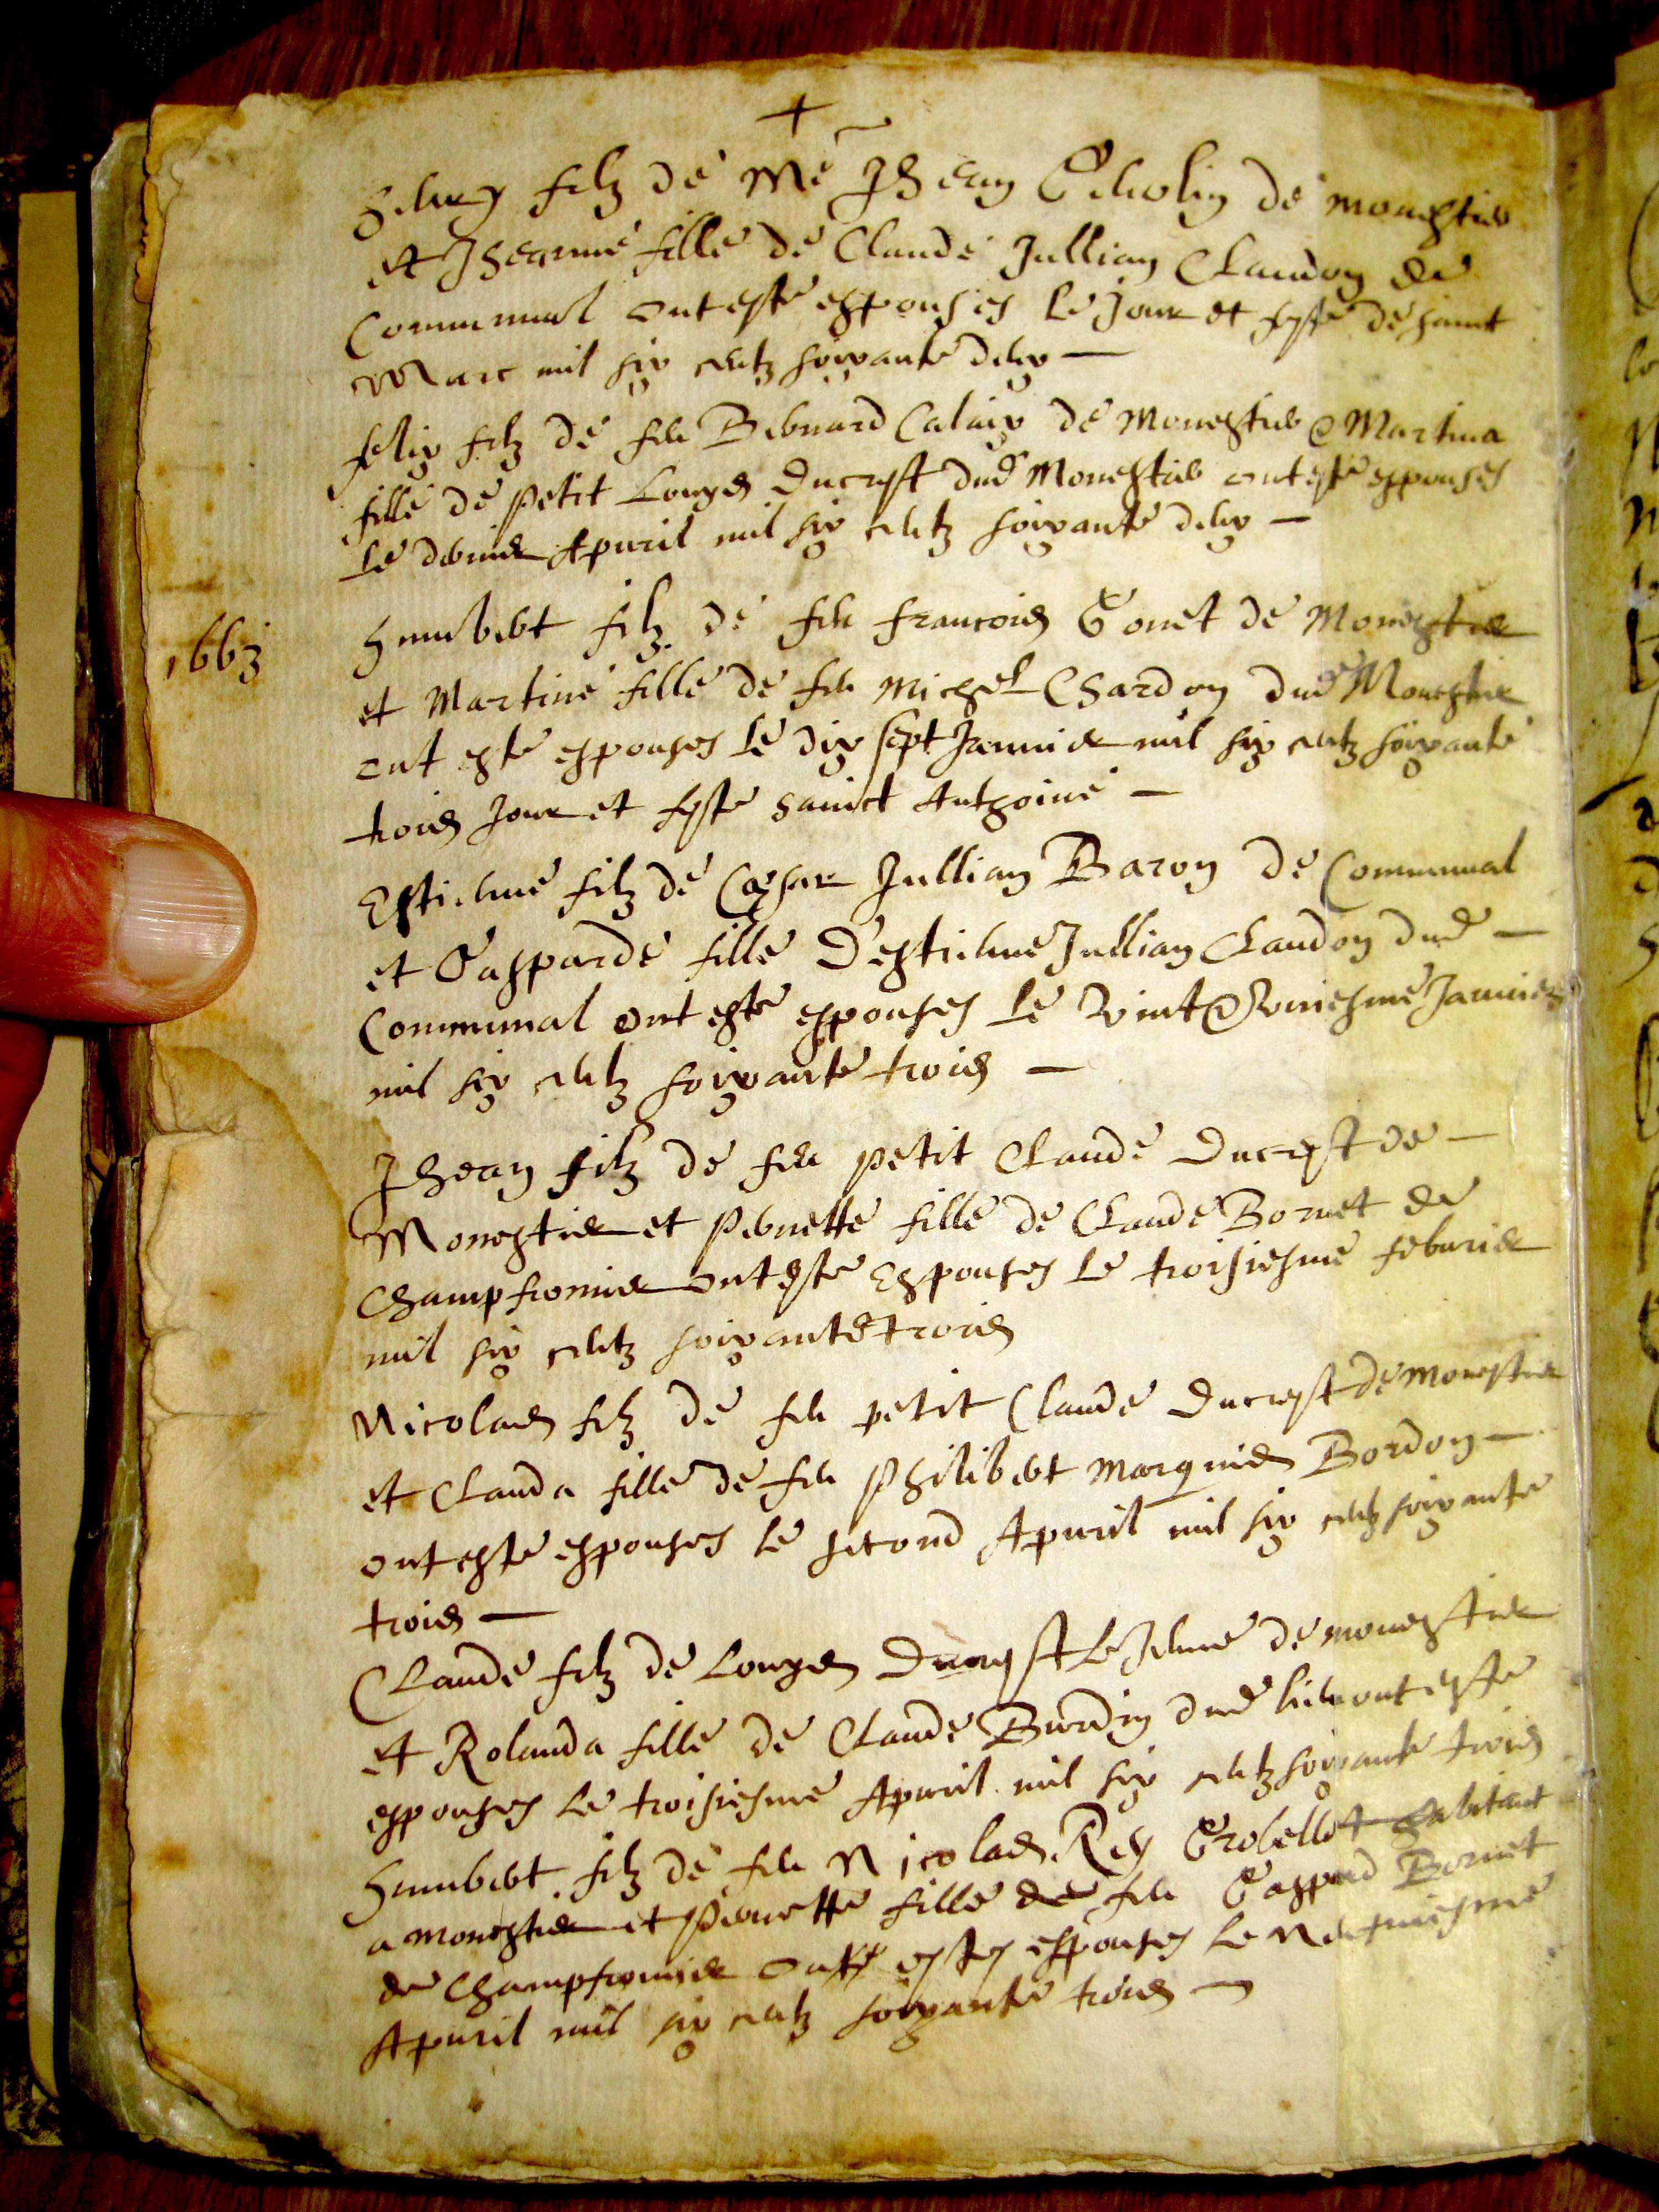 +
Henry filz de Me Jhean Genolin de monestier
et Jheanne fille de Claude Jullian Claudon de
Communal ont esté espousés le jour et feste de sainct
Marc mil six centz soixante deux —
felix filz de feu Bernard Calaix de Monestier & Martina
fille de petit Louys Ducrest dud Monestier ont esté espousés
le dernier Apuril mil six centz soixante deux —
1663
Humbert filz de feu francois Gonet de Monestier
et Martine fille de feu Michel Chardon dud Monestier
ont esté espousés le dix sept Januier mil six centz soixante
trois Jour et feste sainct Anthoine —
Estienne filz de Cæsar Jullian Baron de Communal
et Gasparde fille d'Estienne Jullian Claudon dud —
Communal ont esté espousés le vint & vniesme Januier
mil six centz soixante trois —
Jhean filz de feu petit Claude Ducrest de —
Monestier et Pernette fille de Claude Bornet de
Champfromier ont esté Espousés le troisiesme feburier
mil six centz soixante trois
Nicolas filz de feu petit Claude Ducrest de monestier
et Clauda fille de feu Philibert marquis Bordon —
ont esté espousés le second Apuril mil six centz soixante
trois —
Claude filz de Louys Ducrest le Jeune de monestier
et Rolanda fille de Claude Burdin dud lieu ont esté
espousés le troisiesme Apuril mil six centz soixante trois
Humbert filz de feu Nicolas Rey Grobellet habitant
a monestier et Pernette fille de feu Gaspard Bornet
de Champfromier ont estés espousés le Neufuiesme
Apuril mil six centz soixante trois —